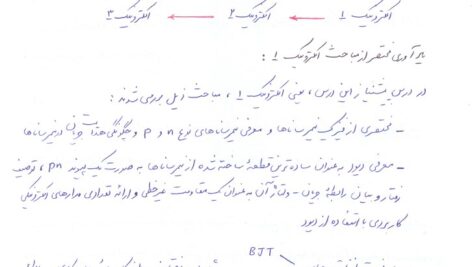 الکترونیک ۱ ← الکترونیک ۲ ← الکترونیک ۳
یادآوری مختصر از مباحث الکترونیک ۱ :
در درس پیشنیاز این درس، یعنی الکترونیک ۱، مباحث ذیل بررسی شدند :
- مختصری از فیزیک نیمرساناها و معرفی نیمرساناهای نوع n و p و چگونگی هدایت جریان در نیمرساناها
- معرفی دیود به عنوان ساده ترین قطعهٔ ساخته شده از نیمرساناها به صورت یک پیوند pn، توصیف
رفتار و بیان رابطهٔ جریان - ولتاژ آن به عنوان یک مقاومت غیرخطی و ارائه تعدادی مدارهای الکترونیکی
کاربردی با استفاده از دیود
BJT